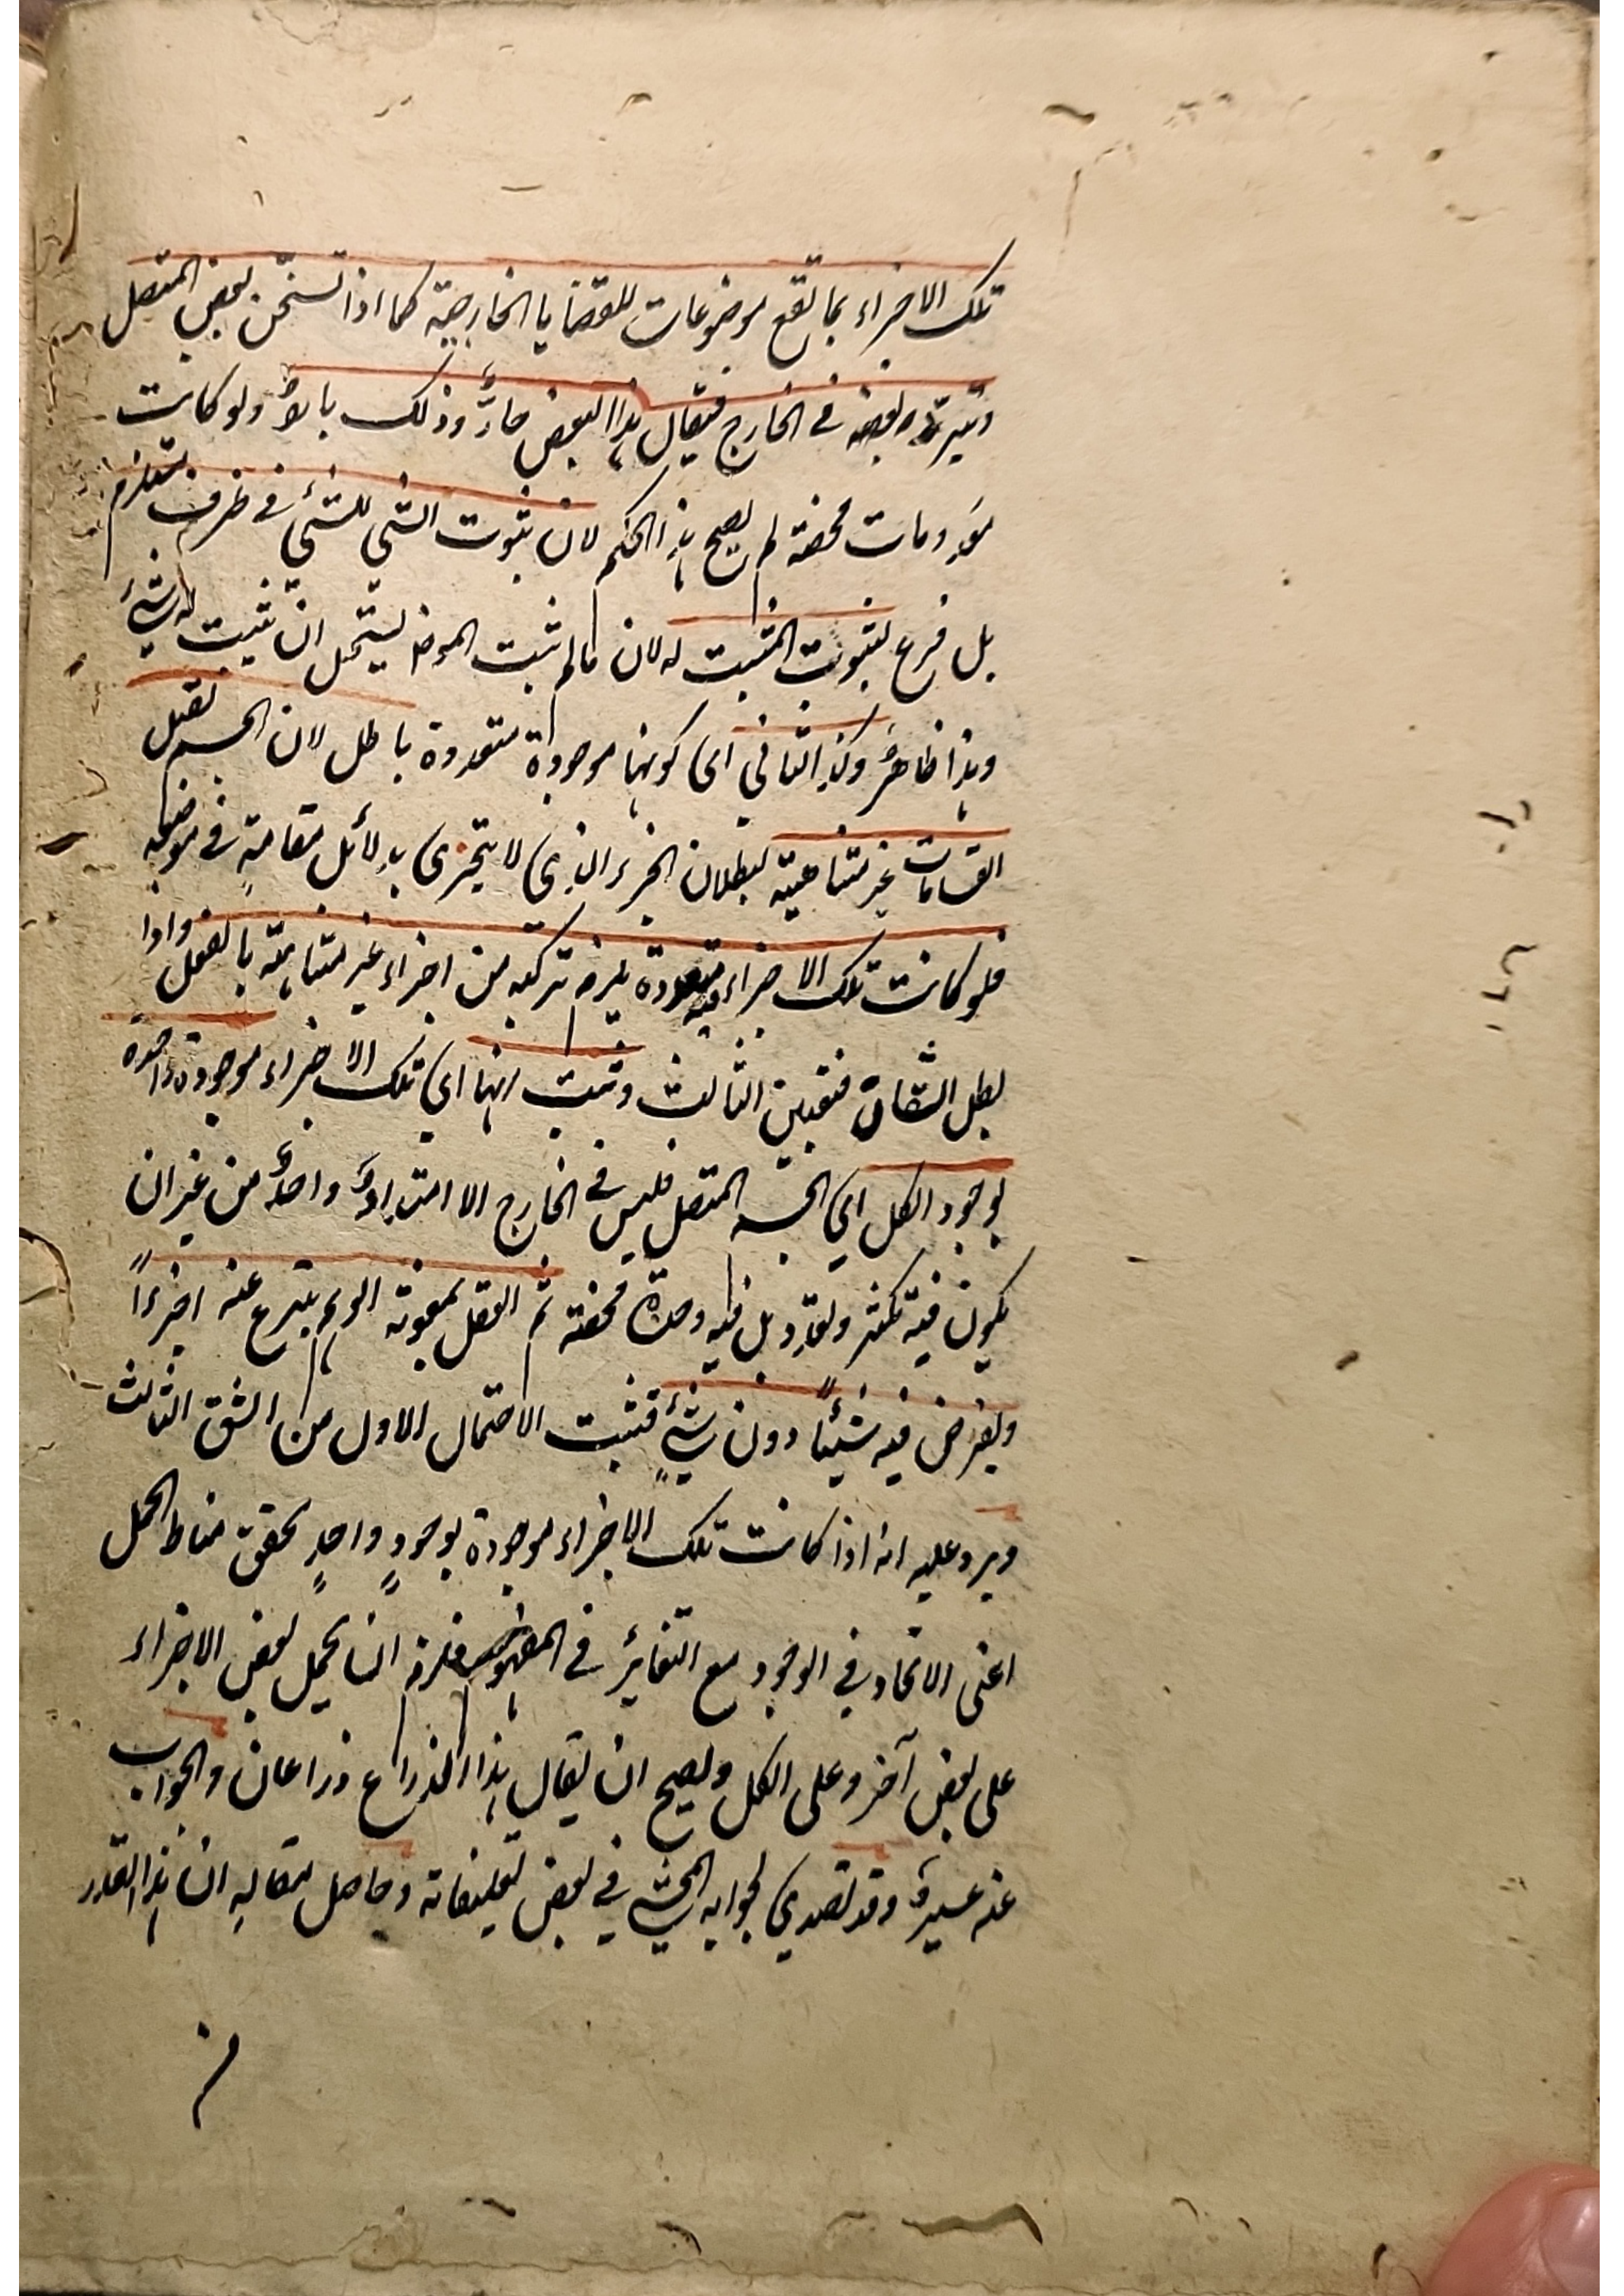 تلك الاجزاء بما تقع موضوعات للقضايا الخارجية كما اذا تسخّن بعض المتصل
وتبرد بعضه في الخارج فيقال هذا البعض حارٌّ وذلك باردٌ ولو كانت
معدومات محضة لم يصح هذا الحكم لان ثبوت الشئ للشئ في ظرف يستلزم
بل فرع لثبوت المثبت له لان ما لم يثبت الموض يستحيل ان يثبت له شئ
وهذا ظاهرٌ وكذا الثاني اى كونها موجودة متعددة باطل لان الجسم يقبل
انقسامات غير متناهية لبطلان الجزء الذى لا يتجزى بدلائل مقامةٍ في موضعه
فلو كانت تلك الاجزاء متعددة فيه يلزم تركبه من اجزاء غير متناهية بالفعل واذا
بطل الشقان فتعين الثالث وثبت انها اي تلك الاجزاء موجودة واحدة
بوجود الكل اي الجسم المتصل فليس في الخارج الا امتدادٌ واحدٌ من غير ان
يكون فيه تكثر وتعدد بل فيه وحدة محضة ثم العقل بمعونة الوهم ينتزع عنه اجزءاً
ويفرض فيه شيئاً دون شئٍ فثبت الاحتمال الاول من الشق الثالث
ويرد عليه انه اذا كانت تلك الاجزاء موجودة بوجودٍ واحدٍ تحقق مناط الحمل
اعنى الاتحاد في الوجود مع التغائر في المفهوم فلزم ان يحمل بعض الاجزاء
على بعض آخر وعلى الكل ويصح ان يقال هذا الذراع ذراعان والجواب
عنه عسيرٌ وقد تصدي لجوابه المحشي في بعض تعليقاته وحاصل مقاله ان هذا القدر